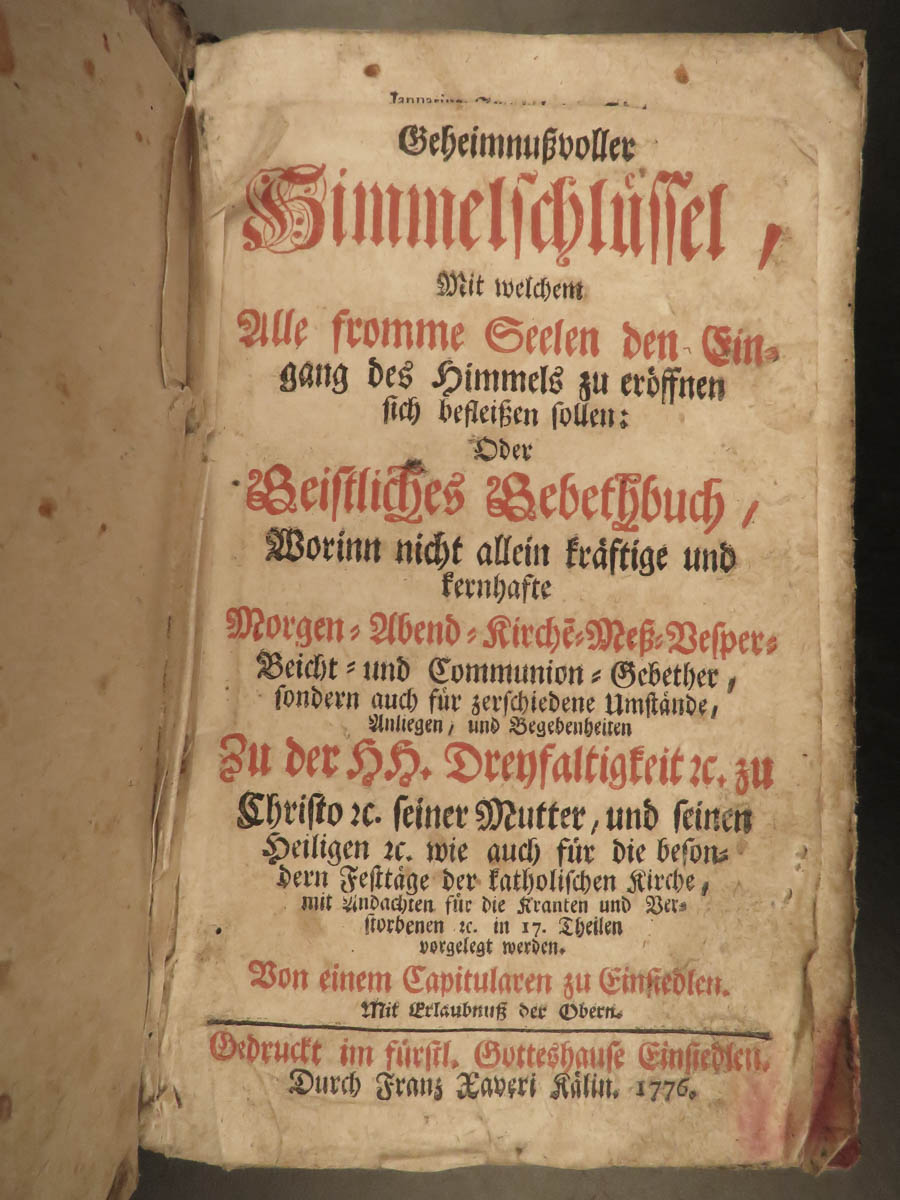 Geheimnußvoller
Himmelschlüssel,
Mit welchem
Alle fromme Seelen den Ein-
gang des Himmels zu eröffnen
sich befleißen sollen:
Oder
Geistliches Gebethbuch,
Worinn nicht allein kräftige und
kernhafte
Morgen-Abend-Kirchē-Meß-Vesper-
Beicht- und Communion-Gebether,
sondern auch für zerschiedene Umstände,
Anliegen, und Begebenheiten
Zu der HH. Dreyfaltigkeit ꝛc. zu
Christo ꝛc. seiner Mutter, und seinen
Heiligen ꝛc. wie auch für die beson-
dern Festtäge der katholischen Kirche,
mit Andachten für die Kranken und Ver-
storbenen ꝛc. in 17. Theilen
vorgelegt werden.
Von einem Capitularen zu Einsiedlen.
Mit Erlaubnuß der Obern.
Gedruckt im fürstl. Gotteshause Einsiedlen.
Durch Franz Xaveri Kälin. 1776.